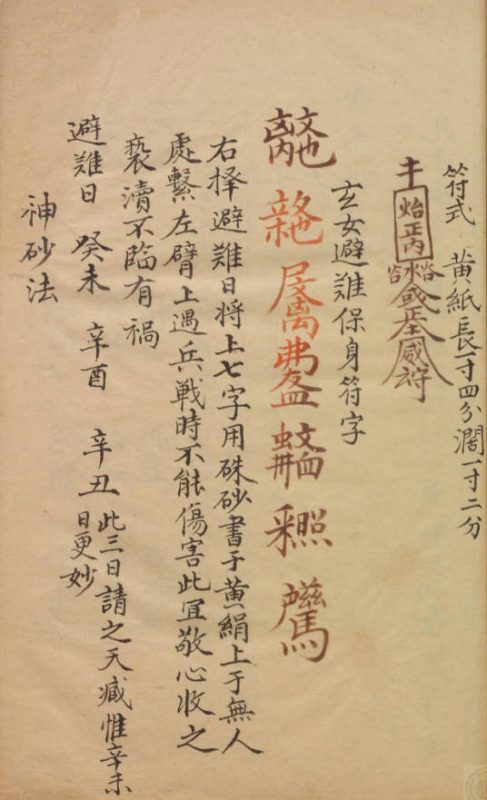 符式 黄紙長一寸四分濶一寸二分
玄女避難保身符字
右择避難日将上七字用硃砂書于黄絹上于無人
處繫左臂上遇兵戦時不能傷害此宜敬心收之
褻瀆不臨有禍
避難日 癸未 辛酉 辛丑 此三日請之天臧惟辛未日更妙
神砂法